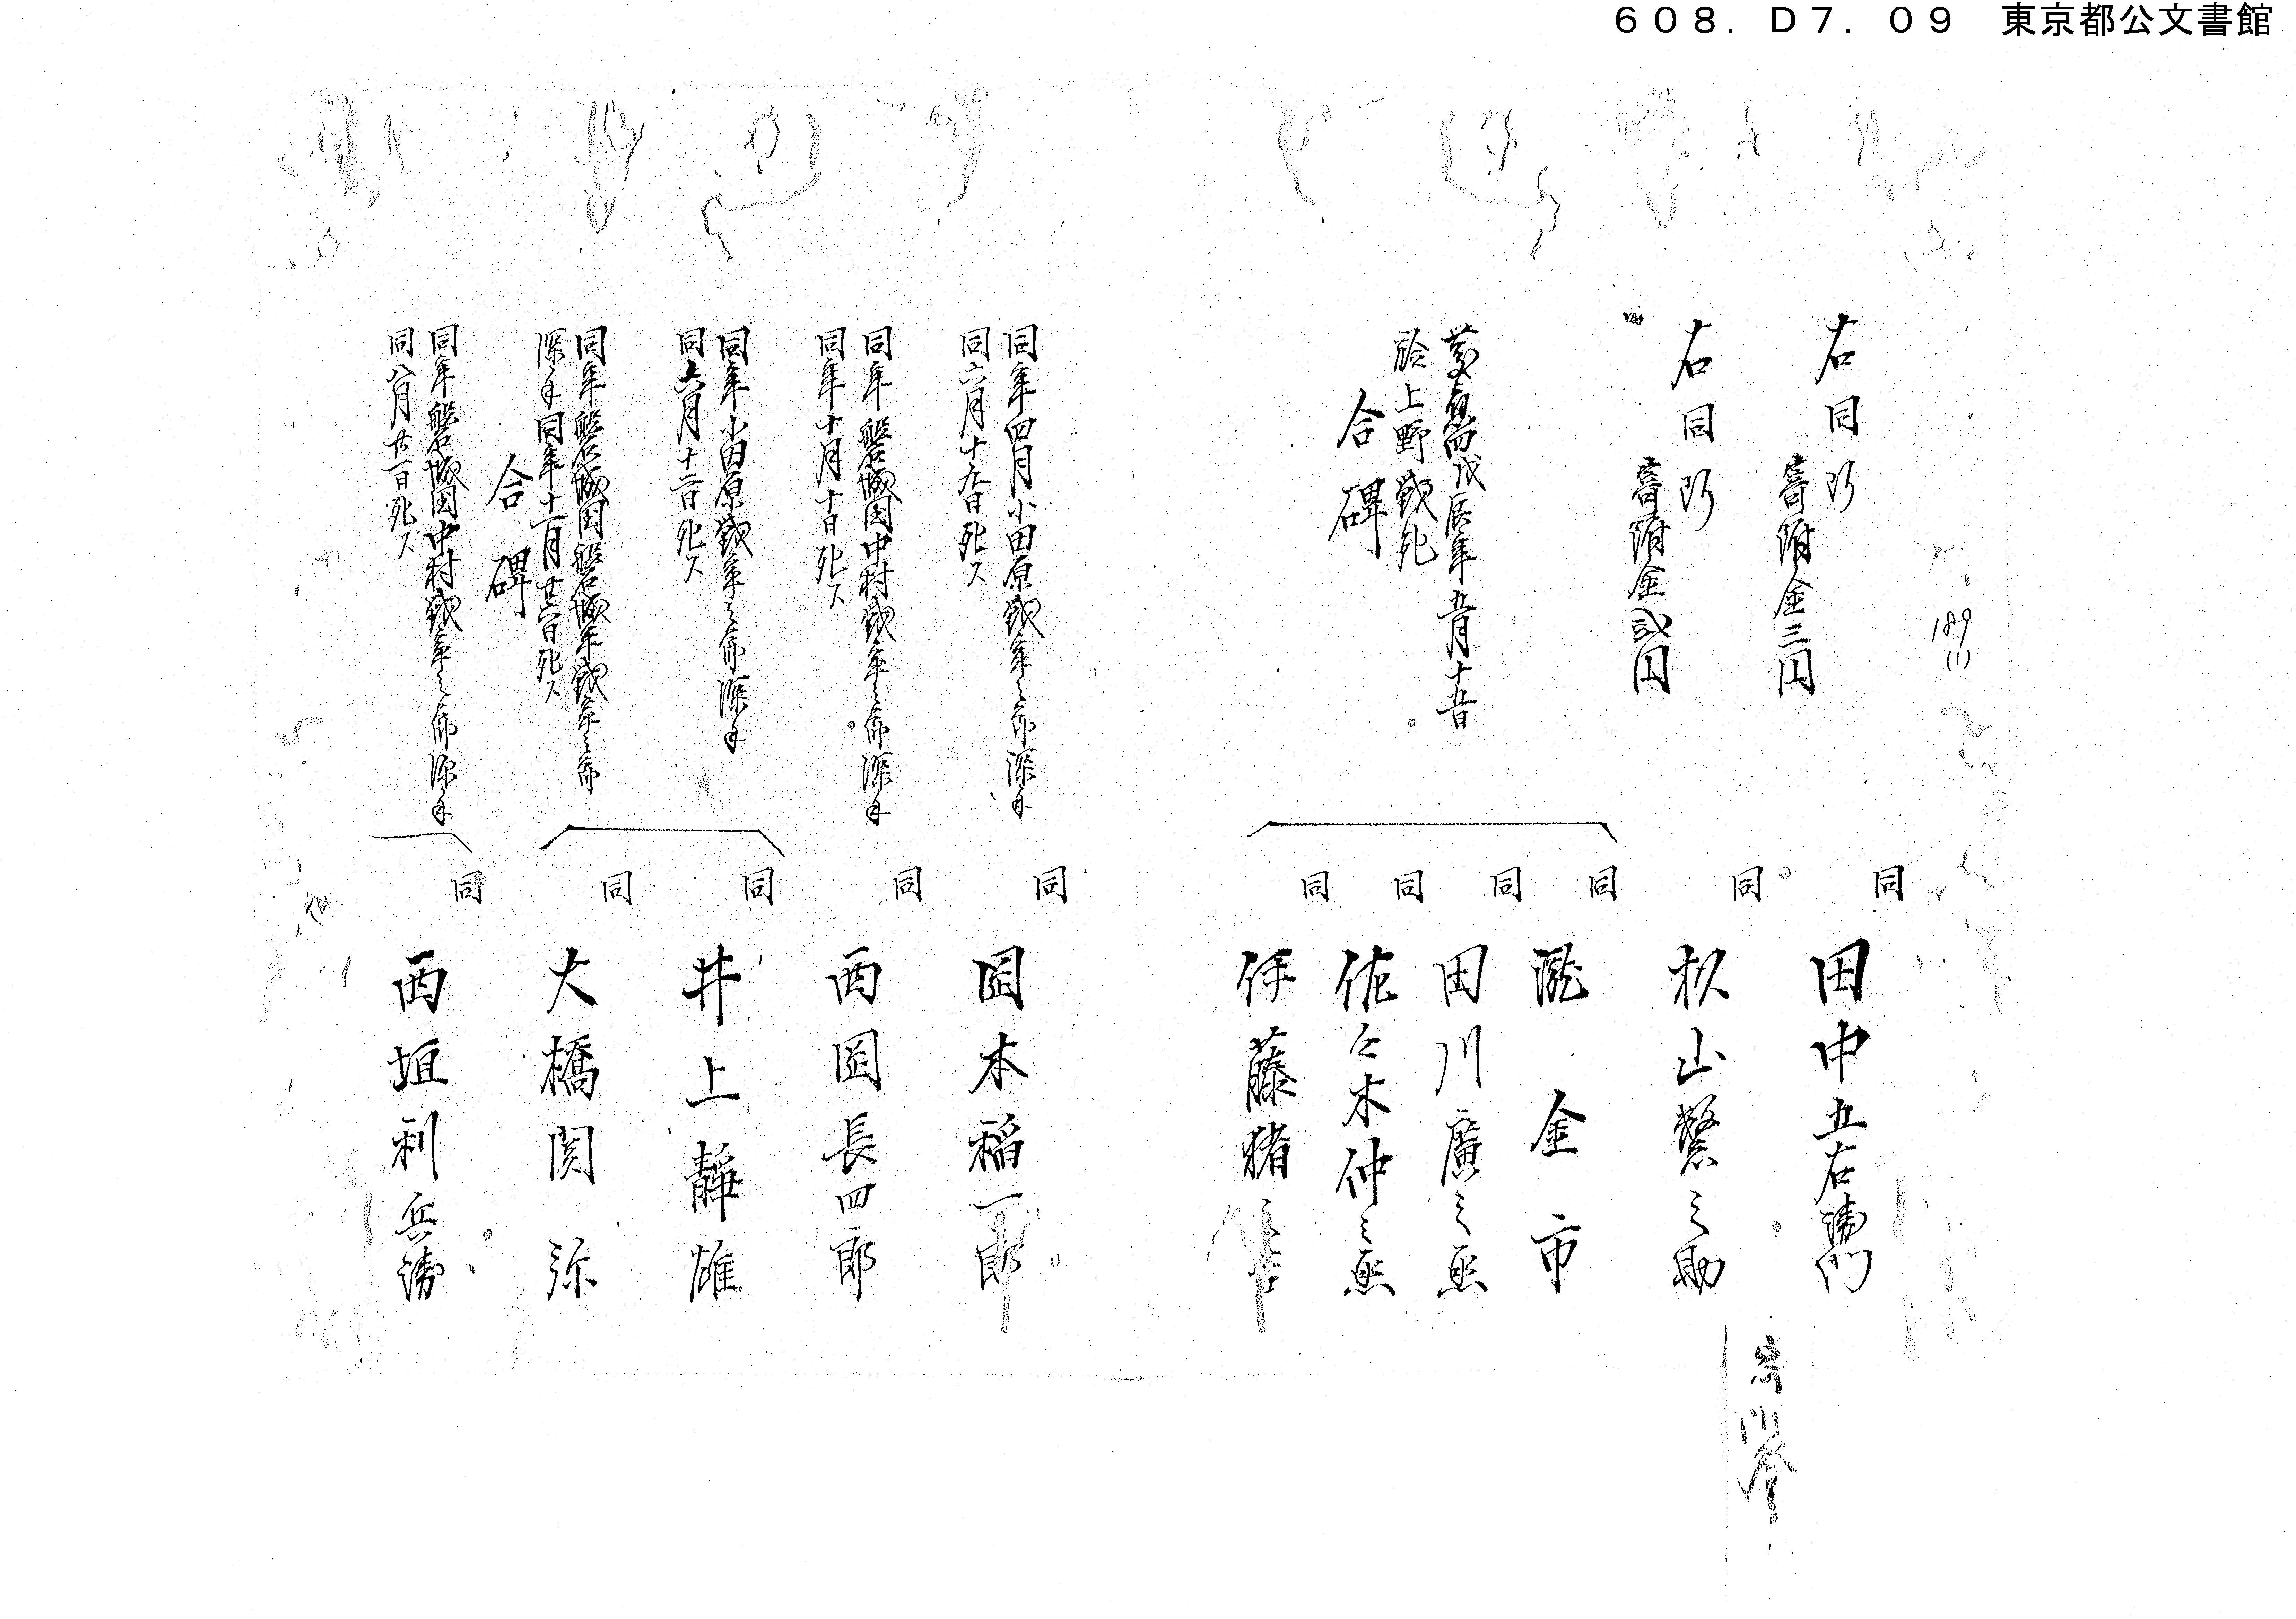 608. D7. 09 東京都公文書館
189
(1)
右同断
寄附金三円
同 田中五右衛門
右同断
寄附金弐円
同 秋山繁之助
慶應四戊辰年五月十五日
於上野戦死
合碑
同 瀧金市
同 田川廣之丞
同 佐々木仲之丞
同 伊藤猪
同年四月小田原戦争之節深手
同六月十九日死ス
同 岡本稲一郎
同年磐城国中村戦争之節深手
同年十月十日死ス
同 西岡長四郎
同年小田原戦争之節深手
同六月十二日死ス
同 井上静雄
同年磐城国磐城平戦争之節
深手同年十一月廿六日死ス
合碑
同 大橋関弥
同年磐城国中村戦争之節深手
同八月廿一日死ス
同 西垣利兵衛